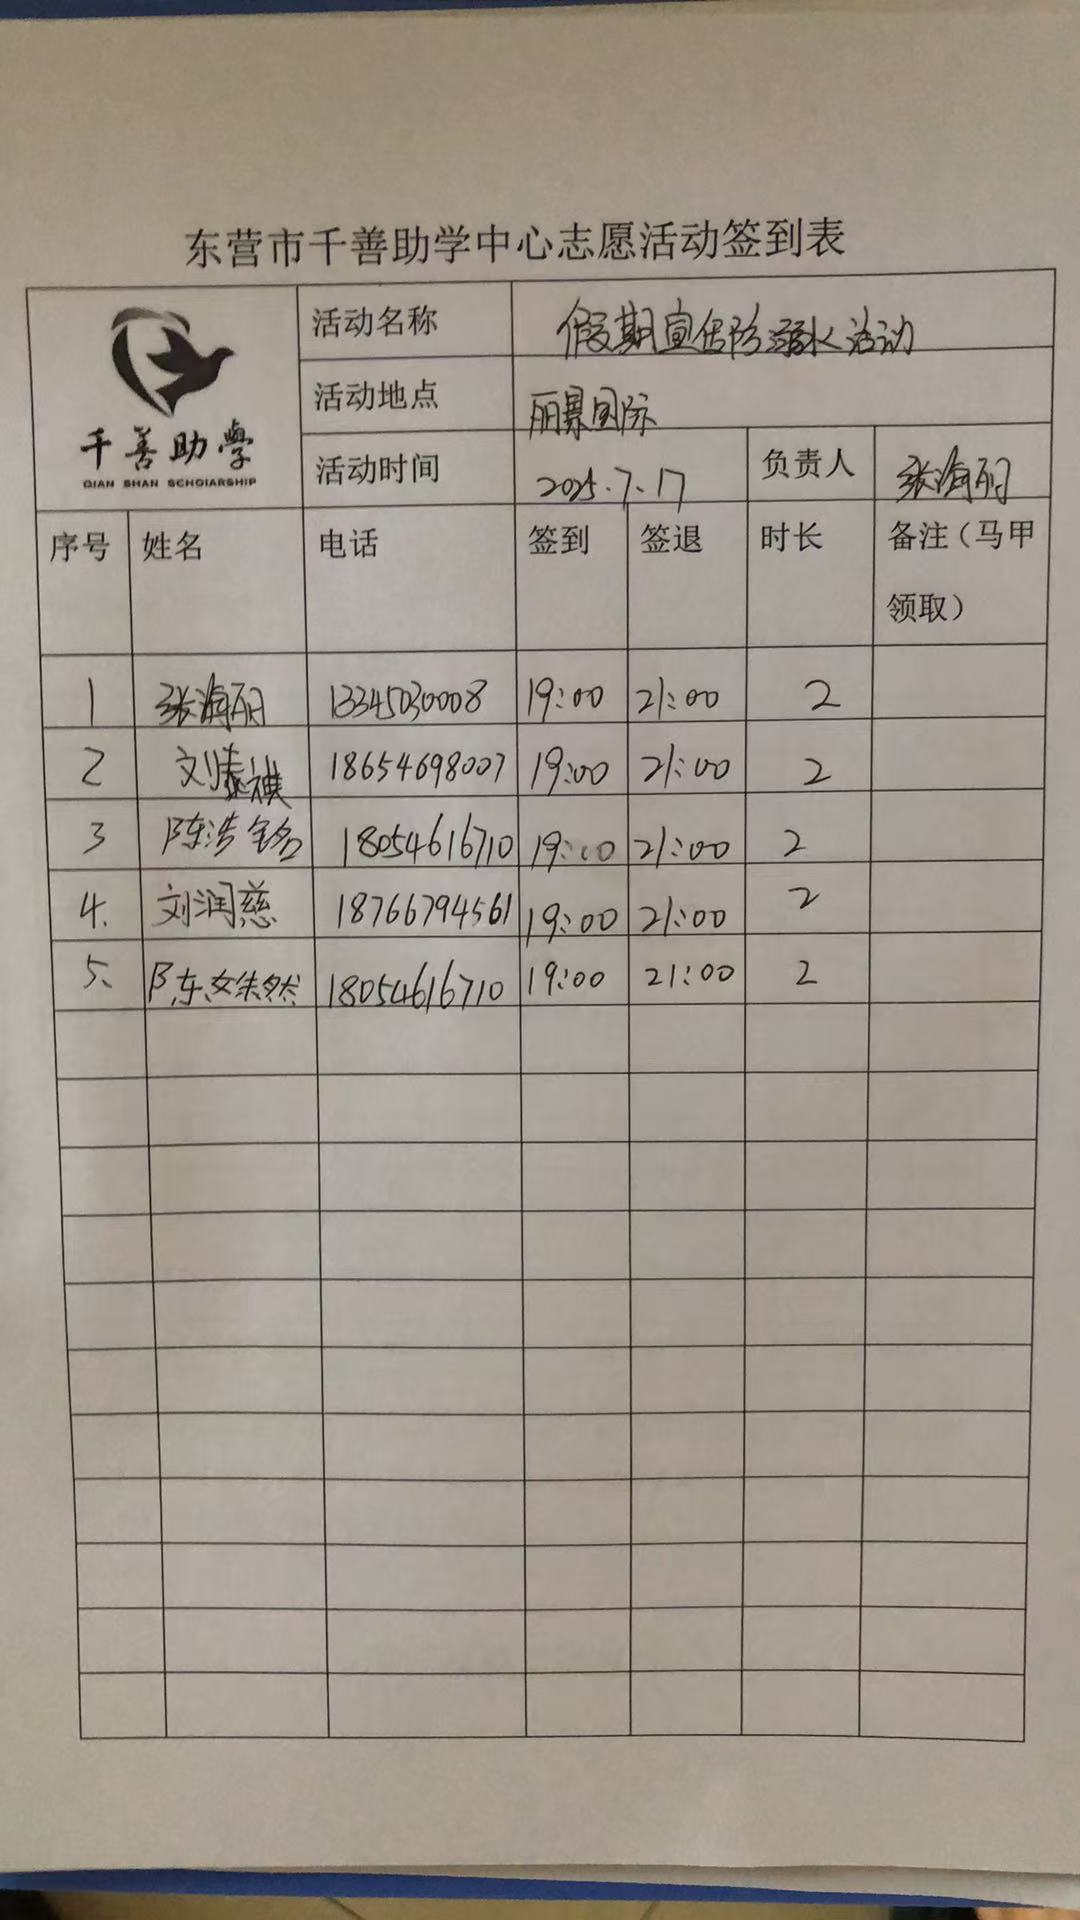 东营市千善助学中心志愿活动签到表
千善助学
QIAN SHAN SCHOIARSHIP
活动名称 假期宣传防溺水活动
活动地点 丽景国际
活动时间 2025.7.17 负责人 张海丽
序号 姓名 电话 签到 签退 时长 备注（马甲
领取）
1 张海丽 13345030008 19:00 21:00 2
2 刘泰祺 18654698007 19:00 21:00 2
3 陈浩铭 18054616710 19:00 21:00 2
4. 刘润慈 18766794561 19:00 21:00 2
5、 陈姝然 18054616710 19:00 21:00 2